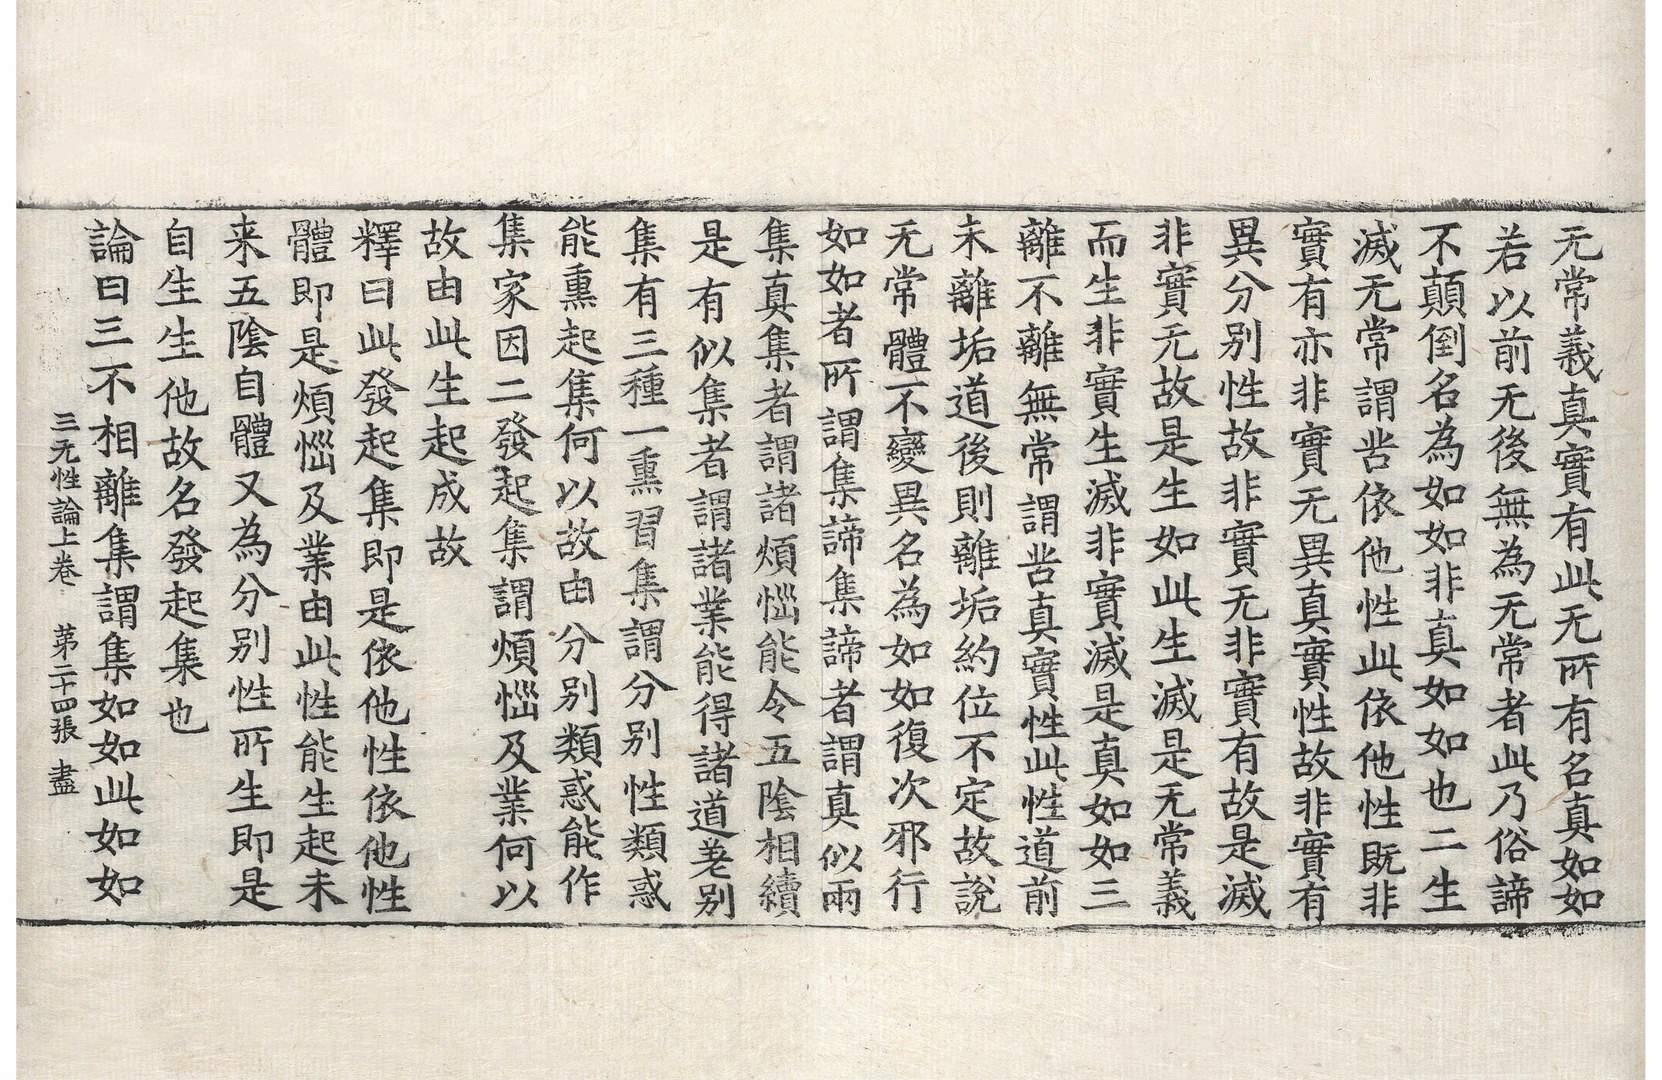 无常義真實有此无所有名真如如
若以前无後無為无常者此乃俗諦
不顛倒名為如如非真如如也二生
滅无常謂呰依他性此依他性既非
實有亦非實无異真實性故非實有
異分别性故非實无非實有故是滅
非實无故是生如此生滅是无常義
而生非實生滅非實滅是真如如三
離不離無常謂呰真實性此性道前
未離垢道後則離垢約位不定故說
无常體不變異名為如如復次邪行
如如者所謂集諦集諦者謂真似兩
集真集者謂諸煩惱能令五陰相續
是有似集者謂諸業能得諸道差别
集有三種一熏習集謂分别性類惑
能熏起集何以故由分别類惑能作
集家因二發起集謂煩惱及業何以
故由此生起成故
釋曰此發起集即是依他性依他性
體即是煩惱及業由此性能生起未
来五陰自體又為分别性所生即是
自生生他故名發起集也
論曰三不相離集謂集如如此如如
三无性論上卷 第二十四張 盡